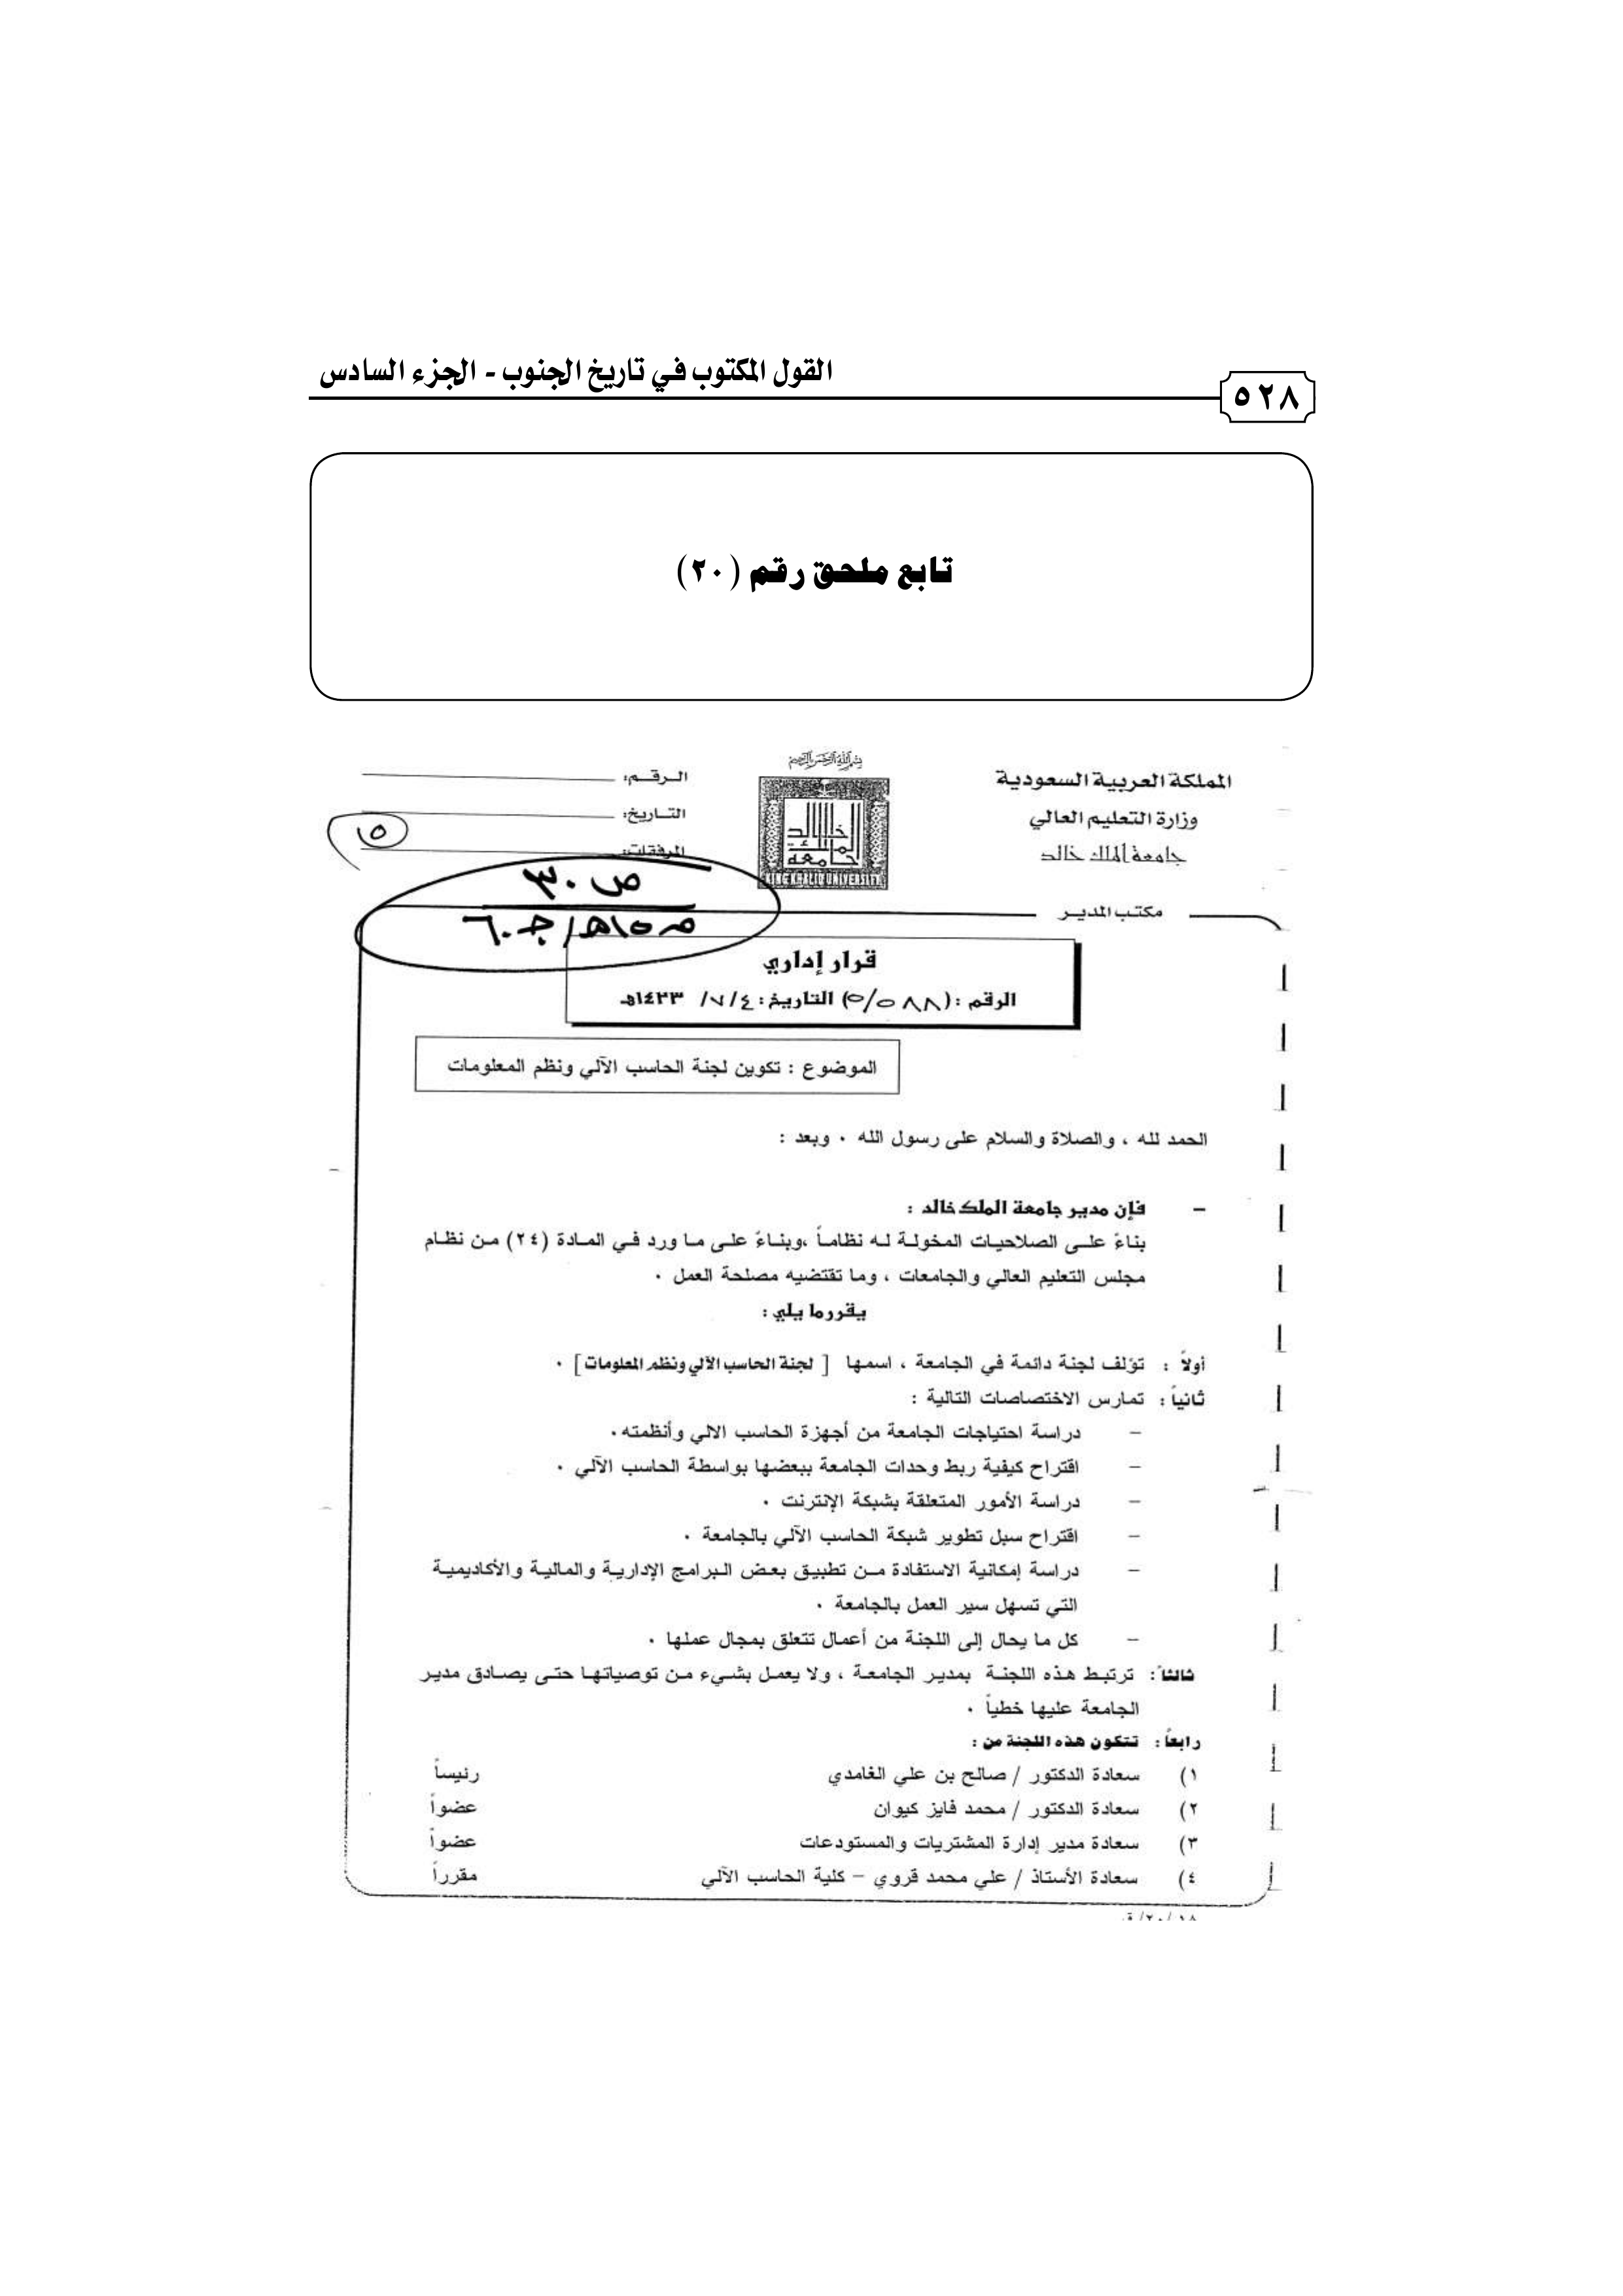 القول المكتوب في تاريخ الجنوب - الجزء السادس
٥٢٨
تابع ملحق رقم (٢٠)
بسم الله الرحمن الرحيم
المملكة العربية السعودية
وزارة التعليم العالي
جامعة الملك خالد
مكتب المدير
جامعة الملك خالد
KING KHALID UNIVERSITY
الرقم:
التاريخ:
المرفقات:
١٥
ص ٣٠
قرار إداري
الرقم : (٥/٥٨٨) التاريخ: ٧/٤/ ١٤٢٣هـ
الموضوع : تكوين لجنة الحاسب الآلي ونظم المعلومات
الحمد لله ، والصلاة والسلام على رسول الله . وبعد :
– فإن مدير جامعة الملك خالد :
بناءً على الصلاحيات المخولة له نظاماً ،وبناءً على ما ورد في المادة (٢٤) من نظام
مجلس التعليم العالي والجامعات ، وما تقتضيه مصلحة العمل .
يقرر ما يلي :
أولاً : تؤلف لجنة دائمة في الجامعة ، اسمها [ لجنة الحاسب الآلي ونظم المعلومات] .
ثانياً : تمارس الاختصاصات التالية :
– دراسة احتياجات الجامعة من أجهزة الحاسب الالي وأنظمته.
– اقتراح كيفية ربط وحدات الجامعة ببعضها بواسطة الحاسب الآلي .
– دراسة الأمور المتعلقة بشبكة الإنترنت .
– اقتراح سبل تطوير شبكة الحاسب الآلي بالجامعة .
– دراسة إمكانية الاستفادة من تطبيق بعض البرامج الإدارية والمالية والأكاديمية
التي تسهل سير العمل بالجامعة .
– كل ما يحال إلى اللجنة من أعمال تتعلق بمجال عملها .
ثالثاً : ترتبط هذه اللجنة بمدير الجامعة ، ولا يعمل بشيء من توصياتها حتى يصادق مدير
الجامعة عليها خطياً .
رابعاً : تتكون هذه اللجنة من :
١) سعادة الدكتور / صالح بن علي الغامدي رئيساً
٢) سعادة الدكتور / محمد فايز كيوان عضواً
٣) سعادة مدير إدارة المشتريات والمستودعات عضواً
٤) سعادة الأستاذ / علي محمد قروي – كلية الحاسب الآلي مقرراً